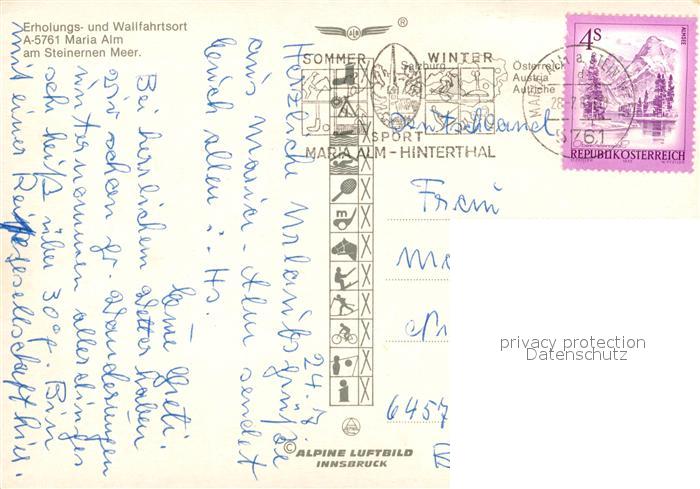 Erholungs- und Wallfahrtsort
A-5761 Maria Alm
am Steinernen Meer.
ALM
®
SOMMER
WINTER
Salzburg
Österreich
Austria
Autriche
SPORT
MARIA ALM - HINTERTHAL
5761
4S
ALMSEE
REPUBLIK ÖSTERREICH
24. 7.
Herzlich Urlaubsgrüße
aus Maria - Alm sendet
Euch allen
Eure Greti.
Bei herrlichem Wetter haben
wir schon gr. Wanderungen
unternommen allerdings
sehr heiß über 30°. Bin
mit einer Reisegesellschaft hier.
Deutschland
Frau
6457
© ALPINE LUFTBILD
INNSBRUCK
privacy protection
Datenschutz